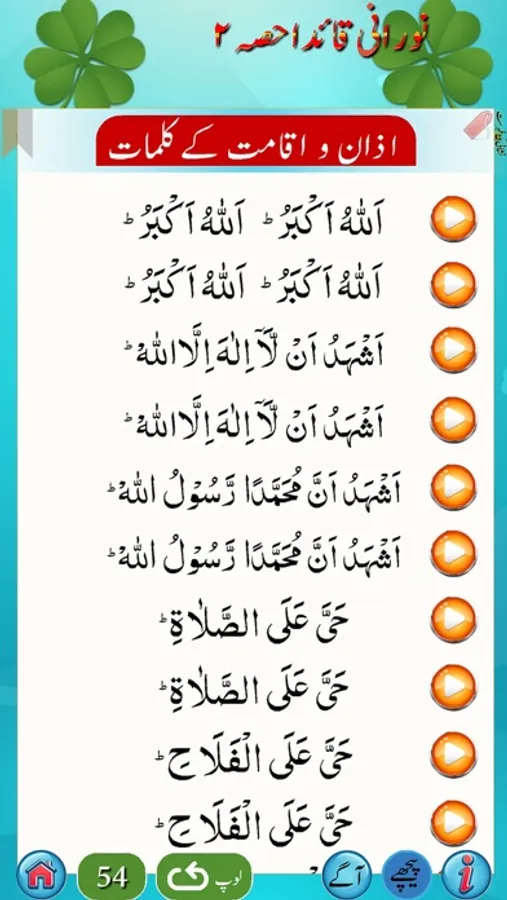 نورانی قائدہ حصہ ۲
اذان و اقامت کے کلمات
اَللهُ اَكْبَرُ ؕ اَللهُ اَكْبَرُ ؕ
اَللهُ اَكْبَرُ ؕ اَللهُ اَكْبَرُ ؕ
اَشْهَدُ اَنْ لَّآ اِلٰهَ اِلَّا اللهْ ؕ
اَشْهَدُ اَنْ لَّآ اِلٰهَ اِلَّا اللهْ ؕ
اَشْهَدُ اَنَّ مُحَمَّدًا رَّسُوْلُ اللهْ ؕ
اَشْهَدُ اَنَّ مُحَمَّدًا رَّسُوْلُ اللهْ ؕ
حَیَّ عَلَی الصَّلٰاةِ ؕ
حَیَّ عَلَی الصَّلٰاةِ ؕ
حَیَّ عَلَی الْفَلَاحِ ؕ
حَیَّ عَلَی الْفَلَاحِ ؕ
54
لوپ
آگے
پیچھے
i